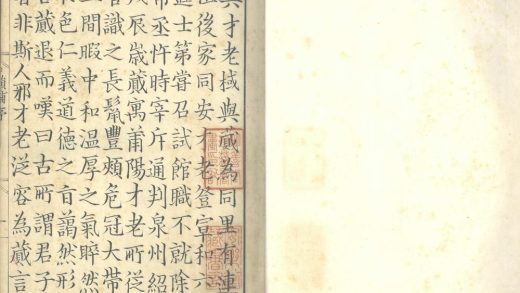 才老棫與蕆為同里有連
後家同安才老登宣和六
進士第嘗召試館職不就除
常丞忤時宰斥通判泉州紹
戊辰歲蕆寓莆陽才老所從
識之長鬣豐頰危冠大帶
間暇中和溫厚之氣睟然
色仁義道德之旨藹然形
蕆退而嘆曰古所謂君子
者非斯人邪才老從容為蕆言
韻補序